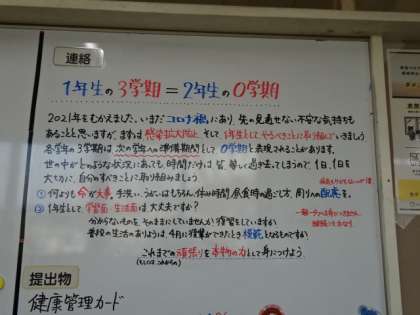 連絡
1年生の3学期=2年生の0学期
2021年をむかえました。いまだコロナ禍にあり、先の見通せない不安な気持ちも
あることと思いますが、まずは感染拡大防止、そして1年生として、やるべきことに取り組んでいきましょう
各学年の3学期は次の学年への準備期間として0学期と表現されることがあります。
世の中がどのような状況にあっても、時間だけは皆、等しく過ぎ去ってしまうので、1日、1日を
大切に、自分のすべきことに取り組みましょう
①何よりも今が大事。手洗い、うがいはもちろん、休み時間、昼食時の過ごし方、周りへの配慮を。
②1年生として、学習面、生活面は大丈夫ですか?
分からないものを、そのままにしていませんか?復習をしていますか?
普段の生活のありようは、4月に後輩ができたとき模範となるものですか?
これまでの頑張りを本物の力として身につけよう。
提出物
健康管理カード